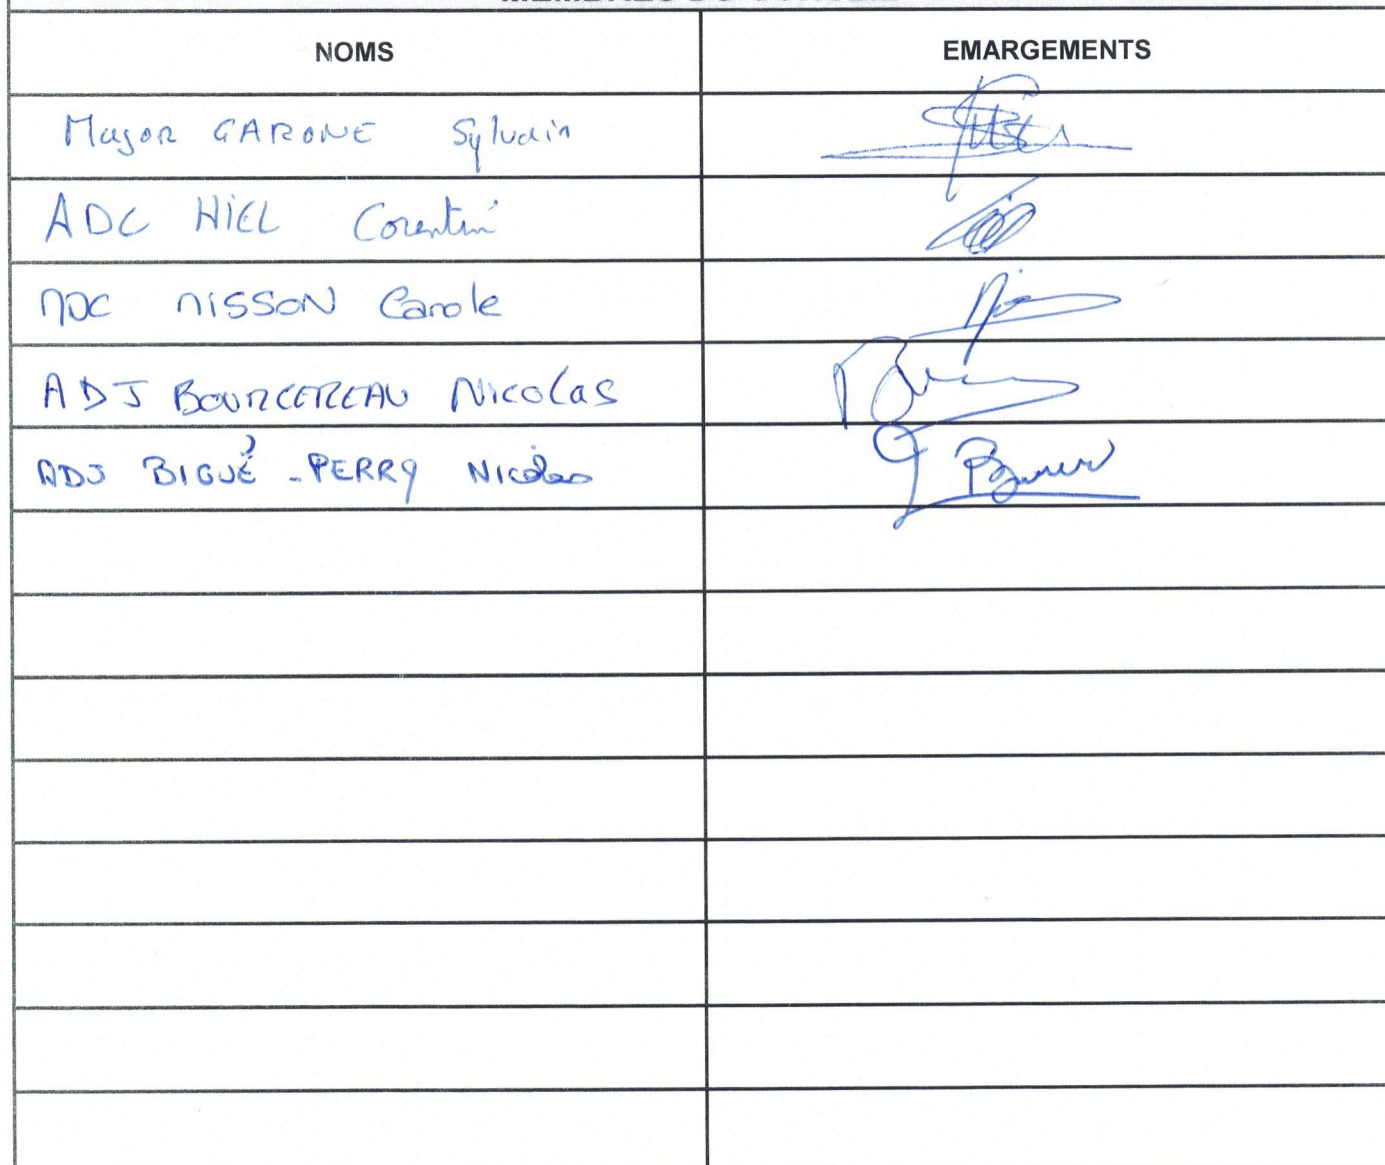 NOMS EMARGEMENTS
Major GARONE Sylvain
ADC HIEL Corentin
MDC NISSON Carole
ADJ BOURCEREAU Nicolas
ADJ BIGUÉ-PERRY Nicolas